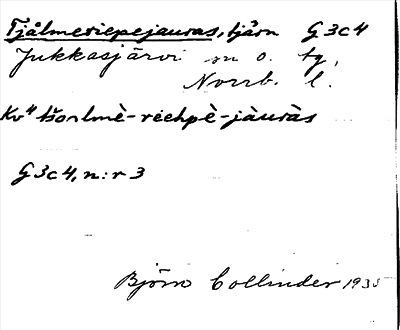 Tjålmeriepejauras, tjärn G 3c4
Jukkasjärvi sn o. tg,
Norrb. l.
Kv" tšoalmè-riehpè-jàuràs
G3c4, n:r 3
Björn Collinder 1935